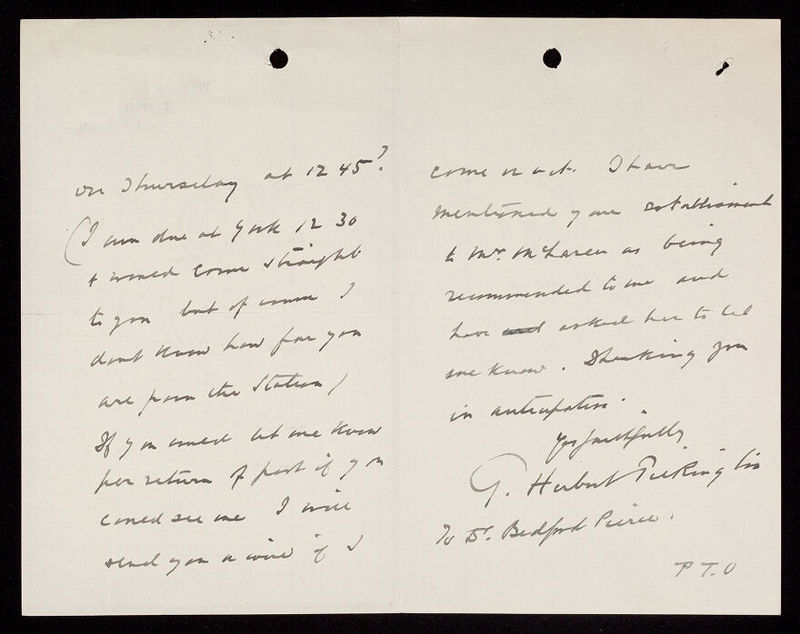 on Thursday at 12 45?
(I am due at York 12 30
& would come straight
to you but of course I
dont know how far you
are from the Station)
If you could let me know
per return of post if you
could see me I will
send you a wire if I
come or not. I have
mentioned your establishment
to Mrs. McLaren as being
recommended to me and
have and asked her to let
me know. Thanking you
in anticipation.
Yrs faithfully
G. Herbert Pilkington
To Dr. Bedford Pierce.
P T. O